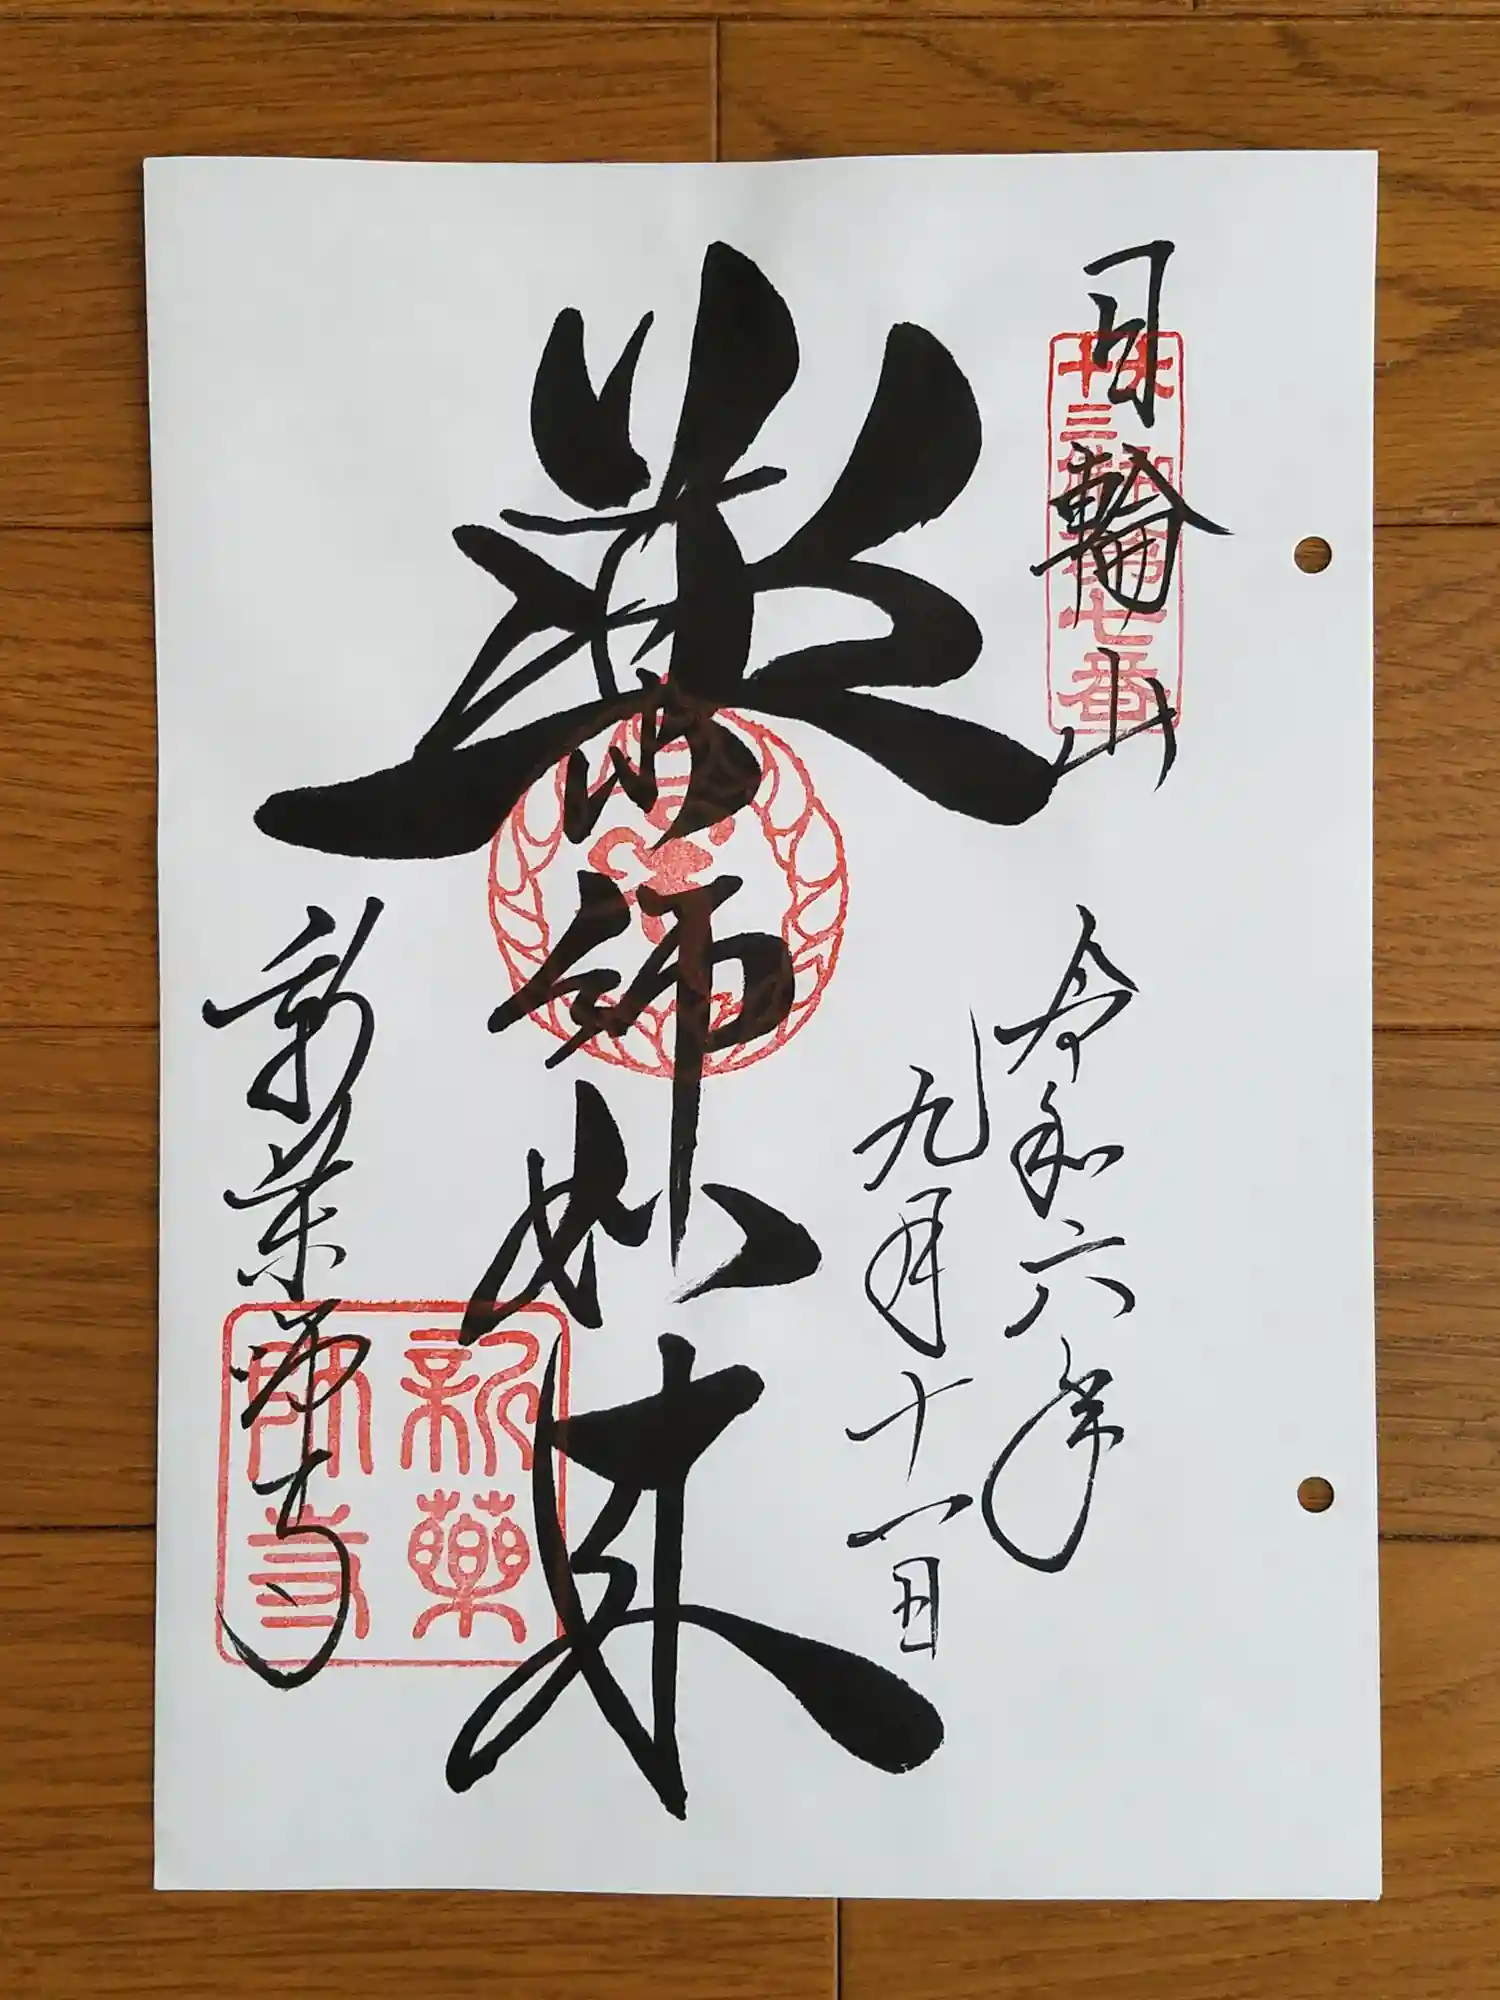 日輪山
大和
十三佛
第七番
令和六年
九月十一日
薬師如来
新薬師寺
新藥
師寺